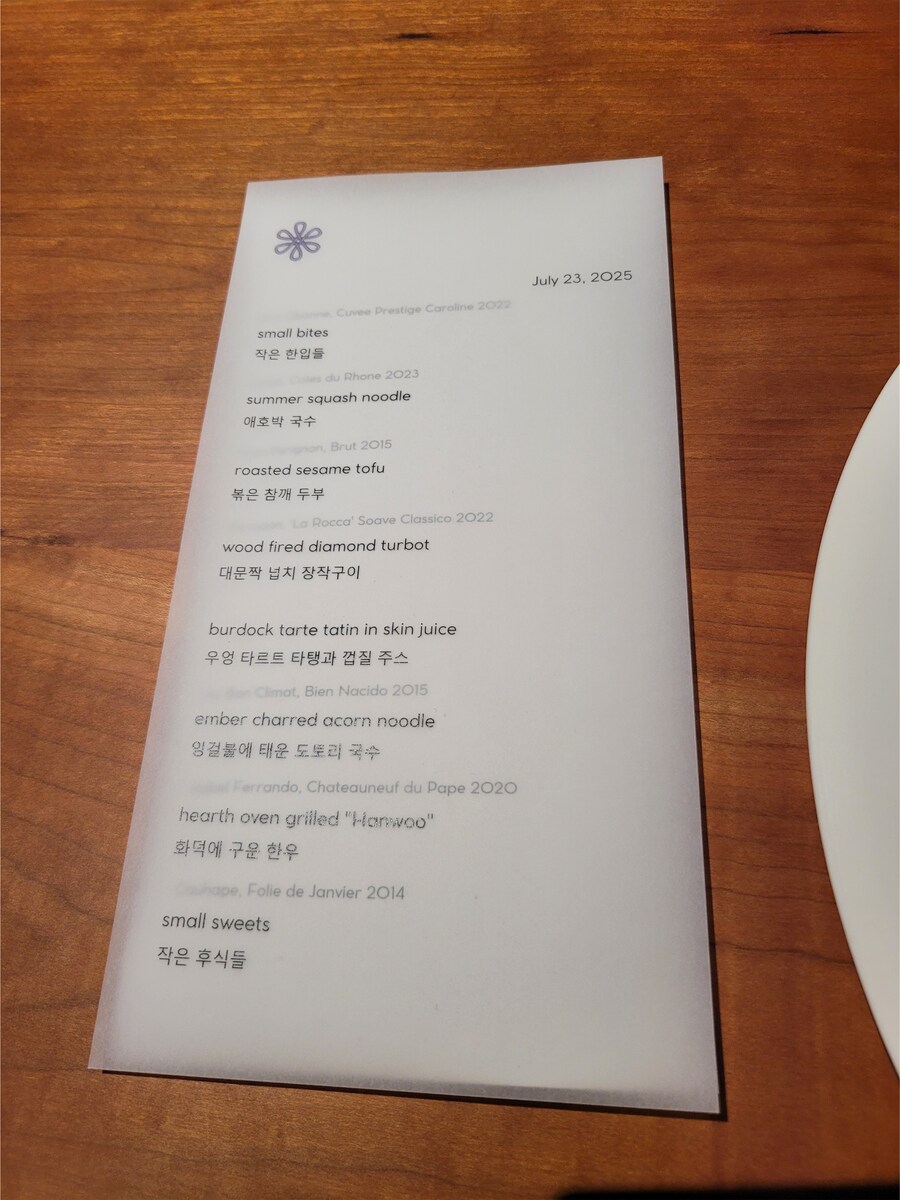 July 23, 2025
Cuvee Prestige Caroline 2022
small bites
작은 한입들
du Rhone 2023
summer squash noodle
애호박 국수
Brut 2015
roasted sesame tofu
볶은 참깨 두부
La Rocca' Soave Classico 2022
wood fired diamond turbot
대문짝 넙치 장작구이
burdock tarte tatin in skin juice
우엉 타르트 타탱과 껍질 주스
Climat, Bien Nacido 2015
ember charred acorn noodle
잉걸불에 태운 도토리 국수
Ferrando, Chateauneuf du Pape 2020
hearth oven grilled "Hanwoo"
화덕에 구운 한우
Folie de Janvier 2014
small sweets
작은 후식들